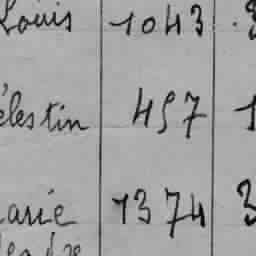 Louis 1043
élestin 457
arie 1374 3